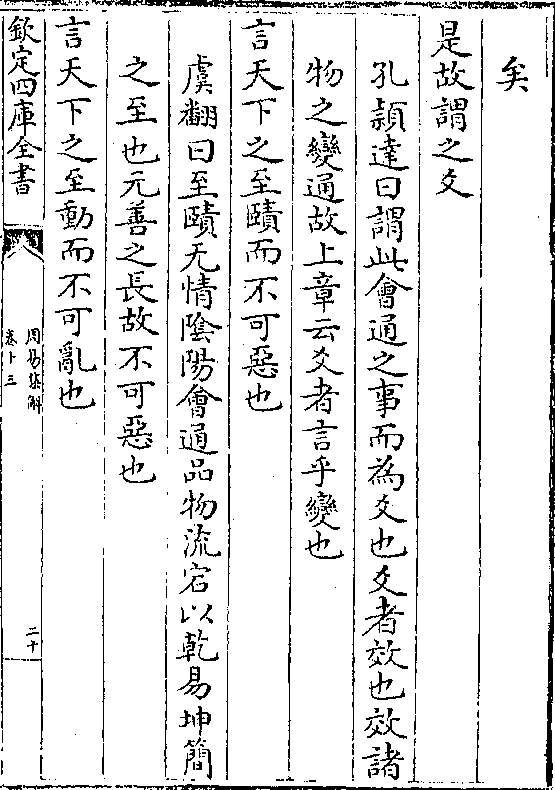 矣
是故謂之爻
孔穎達曰謂此會通之事而為爻也爻者效也效諸
物之變通故上章云爻者言乎變也
言天下之至賾而不可惡也
虞翻曰至賾无情陰陽會通品物流宕以乾易坤簡
之至也元善之長故不可惡也
言天下之至動而不可亂也
欽定四庫全書
周易集解
卷十三
二十